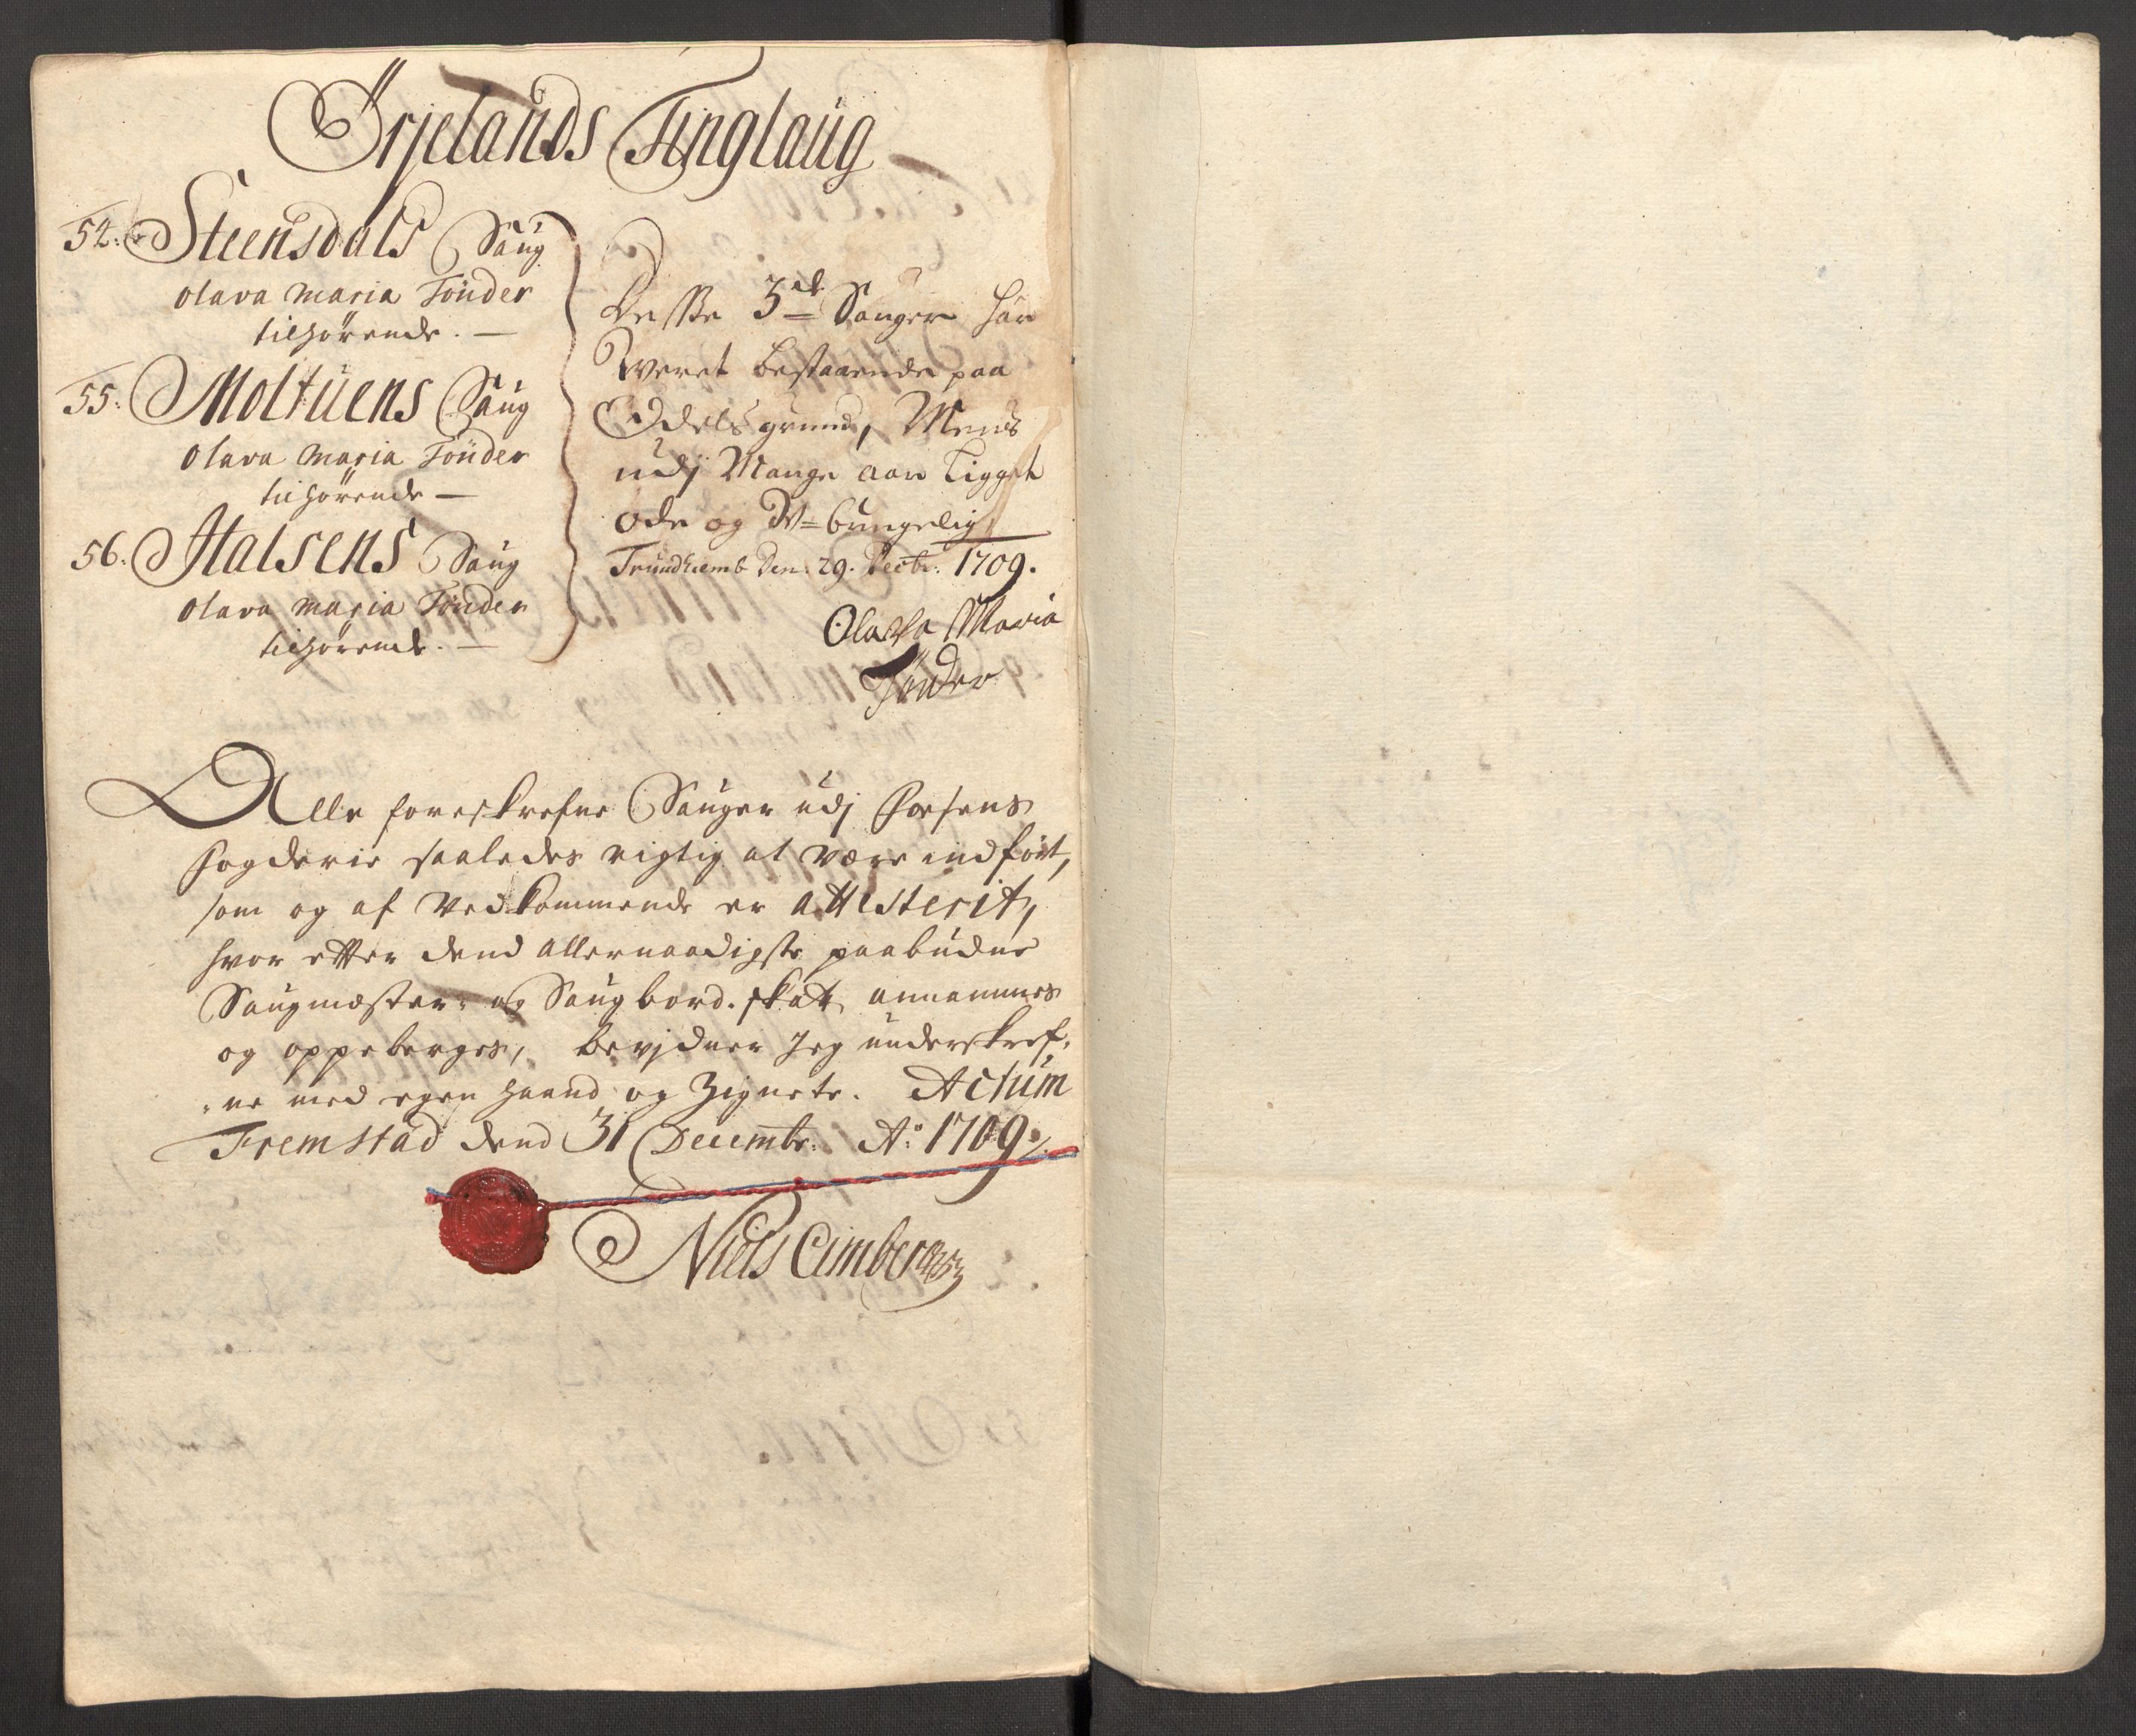 Ørjelands Tinglaug
54. Steensdals Saug
Olava Maria Tönder
tilhörende. —
55. Moltuens Saug
Olava Maria Tönder
tilhörende —
56. Halsens Saug
Olava Maria Tönder
tilhörende. —
Desse 3de Sauger har
weret bestaaende paa
Odels grund, Mens
udj Mange aar Ligget
öde og V=brugelig,
Trundhiemb Den. 29. Decbr. 1709.
Olava Maria
Tönder
Alle foreskrefne Sauger udj Fosens
fogderie saaledes rigtig at være indfört,
som og af Vedkommende er attesterit,
hvor etter dend allernaadigste paabudne
Saugmester- og Saugbord-skat annammes
og oppeberges, bevjdner Jeg underskref-
ne med egen haand og Zignete. Actum
Fremstad dend 31 Decembr. Ao 1709
Niels Cimber